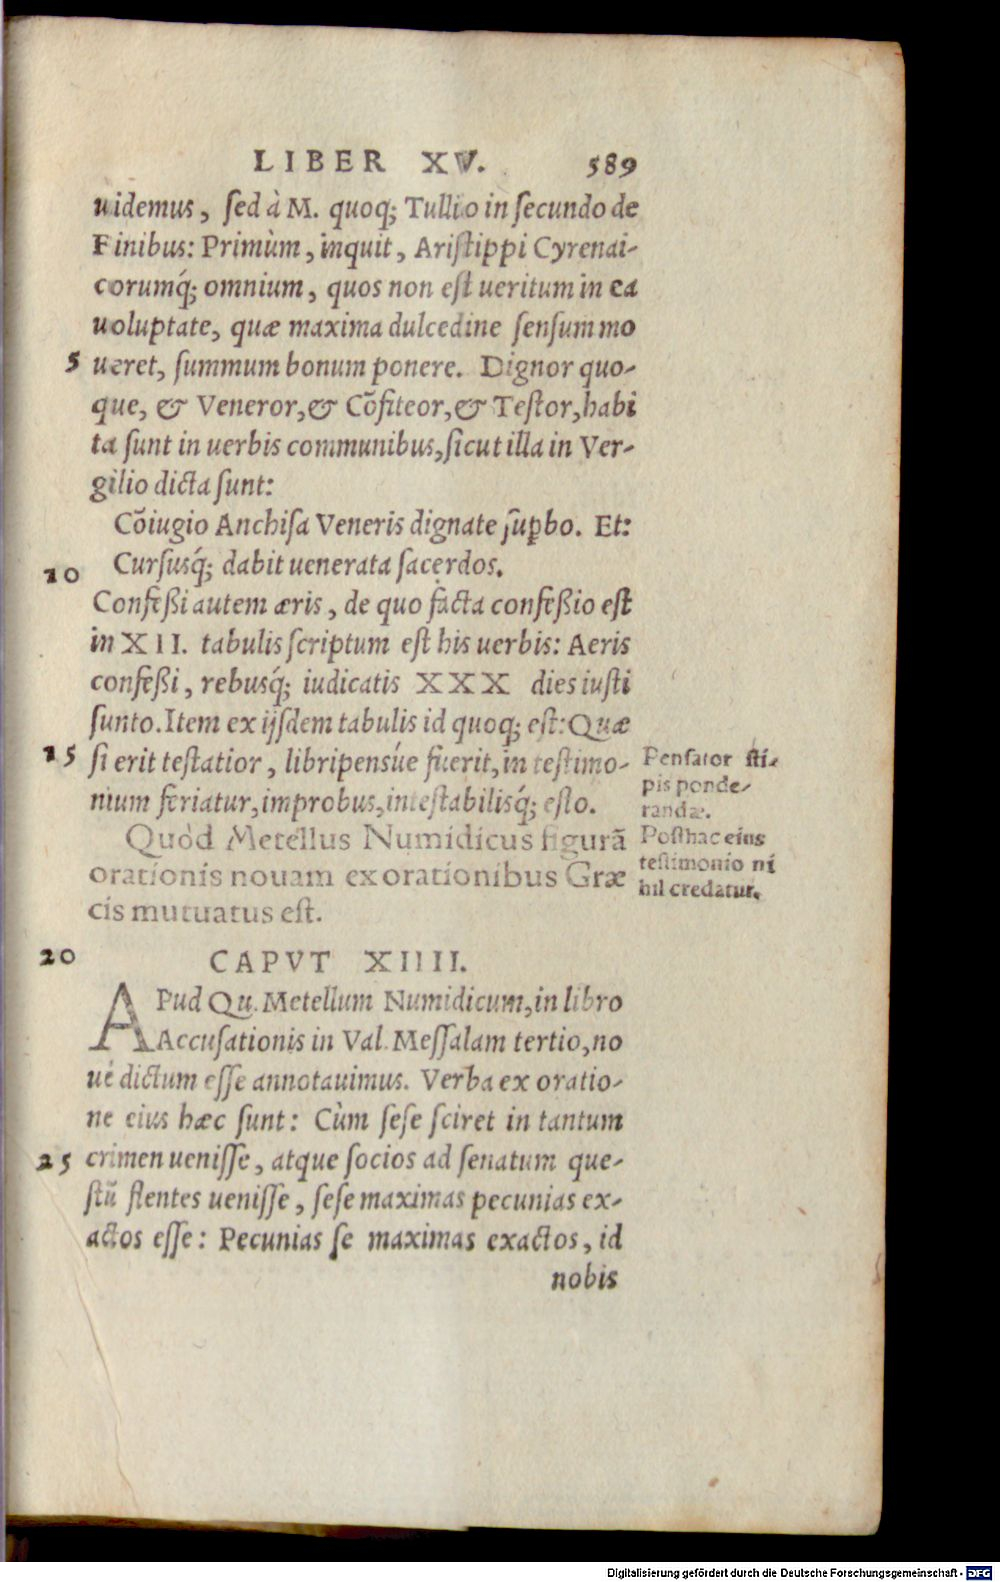 LIBER XV. 589
uidemus, ſed à M. quoq; Tullio in ſecundo de
Finibus: Primùm, inquit, Ariſtippi Cyrenai-
corumq́; omnium, quos non eſt ueritum in ea
uoluptate, quæ maxima dulcedine ſenſum mo
5 ueret, ſummum bonum ponere. Dignor quo-
que, & Veneror, & Cõfiteor, & Teſtor, habi
ta ſunt in uerbis communibus, ſicut illa in Ver-
gilio dicta ſunt:
Cõiugio Anchiſa Veneris dignate ſuꝑbo. Et:
10 Curſusq́; dabit uenerata ſacerdos.
Confeßi autem æris, de quo facta confeßio eſt
in XII. tabulis ſcriptum eſt his uerbis: Aeris
confeßi, rebusq́; iudicatis XXX dies iuſti
ſunto. Item ex ijſdem tabulis id quoq; eſt: Quæ
15 ſi erit teſtatior, libripensúe fuerit, in teſtimo-
nium feriatur, improbus, inteſtabilisq́; eſto.
Penſator ſti-
pis ponde-
randæ.
Poſthac eius
teſtimonio ni
hil credatur.
Quòd Metellus Numidicus figurã
orationis nouam ex orationibus Græ
cis mutuatus eſt.
20 CAPVT XIIII.
APud Qu. Metellum Numidicum, in libro
Accuſationis in Val. Meſſalam tertio, no
uè dictum eſſe annotauimus. Verba ex oratio-
ne eius hæc ſunt: Cùm ſeſe ſciret in tantum
25 crimen ueniſſe, atque ſocios ad ſenatum que-
ſtũ flentes ueniſſe, ſeſe maximas pecunias ex-
actos eſſe: Pecunias ſe maximas exactos, id
nobis
Digitalisierung gefördert durch die Deutsche Forschungsgemeinschaft - DFG